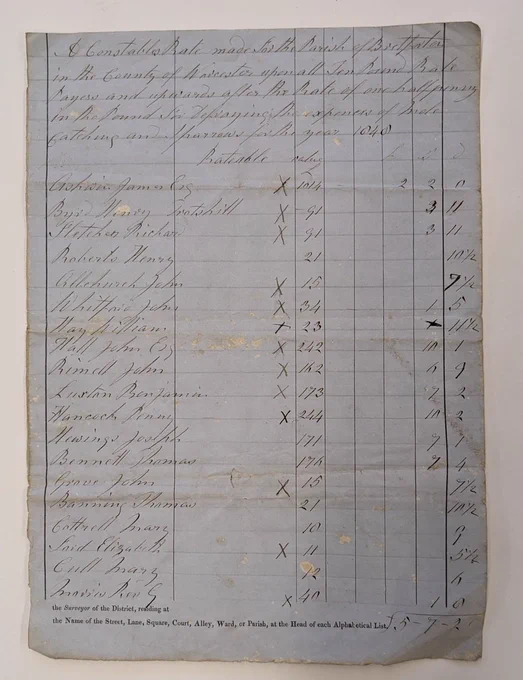 A Constables Rate made for the Parish of Bretforton
in the County of Worcester upon all Ten Pound Rate
Payers and upwards after the Rate of one half penny
in the Pound for Defraying the expences of Mole
Catching and Sparrows for the year 1848
Rateable value £ S D
Ashwin James Esq X 1014 2 2 0
Byrd Henry X 91 3 11
Fletcher Richard X 91 3 11
Roberts Henry 21 10½
Allchurch John X 15 7½
John X 34 1 5
Hay William X 23 11½
Hall John Esq X 242 10 1
Rimell John X 162 6 9
Luxton Benjamin X 173 7 2
Hancock Henry X 244 10 2
Hewings Joseph 171 7
Bennett Thomas 176 7 4
Grove John X 15 7½
Banning Thomas 21 10½
Cottrell Mary 10
Elizabeth X 11 5½
Cull Mary 12 6
Morris Rev G X 40 1 8
the Surveyor of the District, residing at
the Name of the Street, Lane, Square, Court, Alley, Ward, or Parish, at the Head of each Alphabetical List. £5-7-2